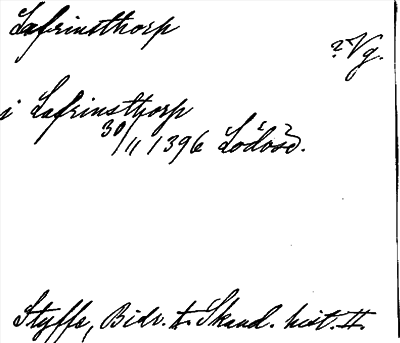 Lafrinsthorp
? Vg.
i Lafrinsthorp
30/11 1396 Lödose.
Styffe, Bidr. t. Skand. hist. II.